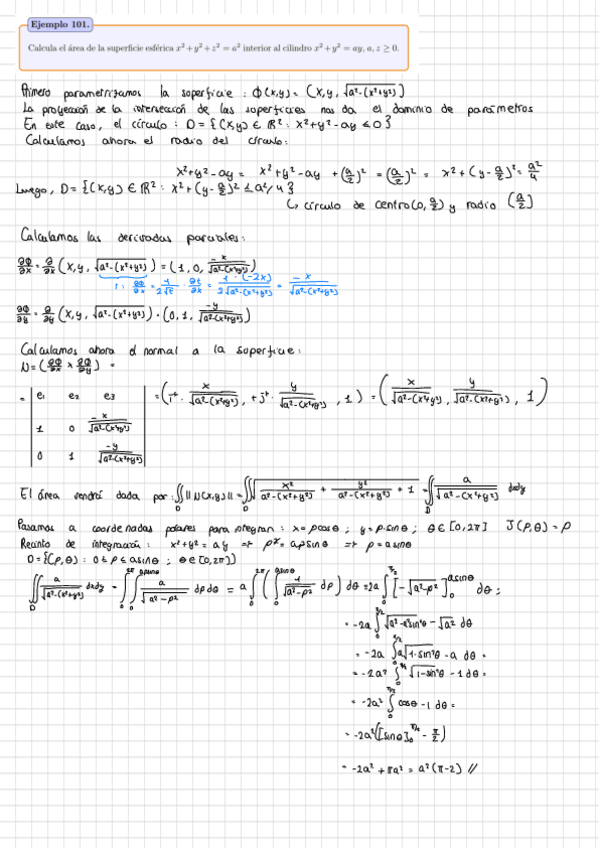 Ejemplo 101.
Calcula el área de la superficie esférica x² + y² + z² = a² interior al cilindro x² + y² = ay, a, z ≥ 0.
Primero parametrizamos la superficie : Φ(x,y) = (x, y, √(a²-(x²+y²)))
La proyección de la intersección de las superficies nos da el dominio de parámetros
En este caso, el círculo : D = {(x,y) ∈ ℝ² : x²+y²-ay ≤ 0}
Calculamos ahora el radio del círculo:
x²+y²-ay = x²+y²-ay + (a/2)² = (a/2)² = x² + (y - a/2)² = a²/4
Luego, D = {(x,y) ∈ ℝ² : x² + (y - a/2)² ≤ a²/4}
↳ círculo de centro (0, a/2) y radio (a/2)
Calculamos las derivadas parciales:
∂Φ/∂x = ∂/∂x (x, y, √(a²-(x²+y²))) = (1, 0, -x/√(a²-(x²+y²)))
t : ∂Φ/∂x = 1/(2√t) · ∂t/∂x = 1·(-2x)/(2√(a²-(x²+y²))) = -x/√(a²-(x²+y²))
∂Φ/∂y = ∂/∂y (x, y, √(a²-(x²+y²))) = (0, 1, -y/√(a²-(x²+y²)))
Calculamos ahora el normal a la superficie:
N = (∂Φ/∂x × ∂Φ/∂y) =
= | e₁ e₂ e₃ | = (i+ · x/√(a²-(x²+y²)), +j+ · y/√(a²-(x²+y²)), 1) = (x/√(a²-(x²+y²)), y/√(a²-(x²+y²)), 1)
| 1 0 -x/√(a²-(x²+y²)) |
| 0 1 -y/√(a²-(x²+y²)) |
El área vendrá dada por : ∬_D ||N(x,y)|| = ∬_D √(x²/(a²-(x²+y²)) + y²/(a²-(x²+y²)) + 1) = ∬_D a/√(a²-(x²+y²)) dxdy
Pasamos a coordenadas polares para integrar : x = ρcosθ ; y = ρsinθ ; θ ∈ [0,2π] J(ρ,θ) = ρ
Recinto de integración : x²+y² = ay ⇒ ρ² = aρsinθ ⇒ ρ = asinθ
D = {(ρ,θ) : 0 ≤ ρ ≤ asinθ ; θ ∈ [0,2π]}
∬_D a/√(a²-(x²+y²)) dxdy = ∫₀^2π ∫₀^asinθ a/√(a²-ρ²) dρdθ = a ∫₀^2π (∫₀^asinθ 1/√(a²-ρ²) dρ) dθ = 2a ∫₀^π/2 [-√(a²-ρ²)]₀^asinθ dθ ;
= -2a ∫₀^π/2 √(a²-a²sin²θ) - √a² dθ
= -2a ∫₀^π/2 a√(1-sin²θ) - a dθ =
= -2a² ∫₀^π/2 √(1-sin²θ) - 1 dθ =
= -2a² ∫₀^π/2 cosθ - 1 dθ =
= -2a² ([sinθ]₀^π/2 - π/2)
= -2a² + πa² = a²(π-2) //